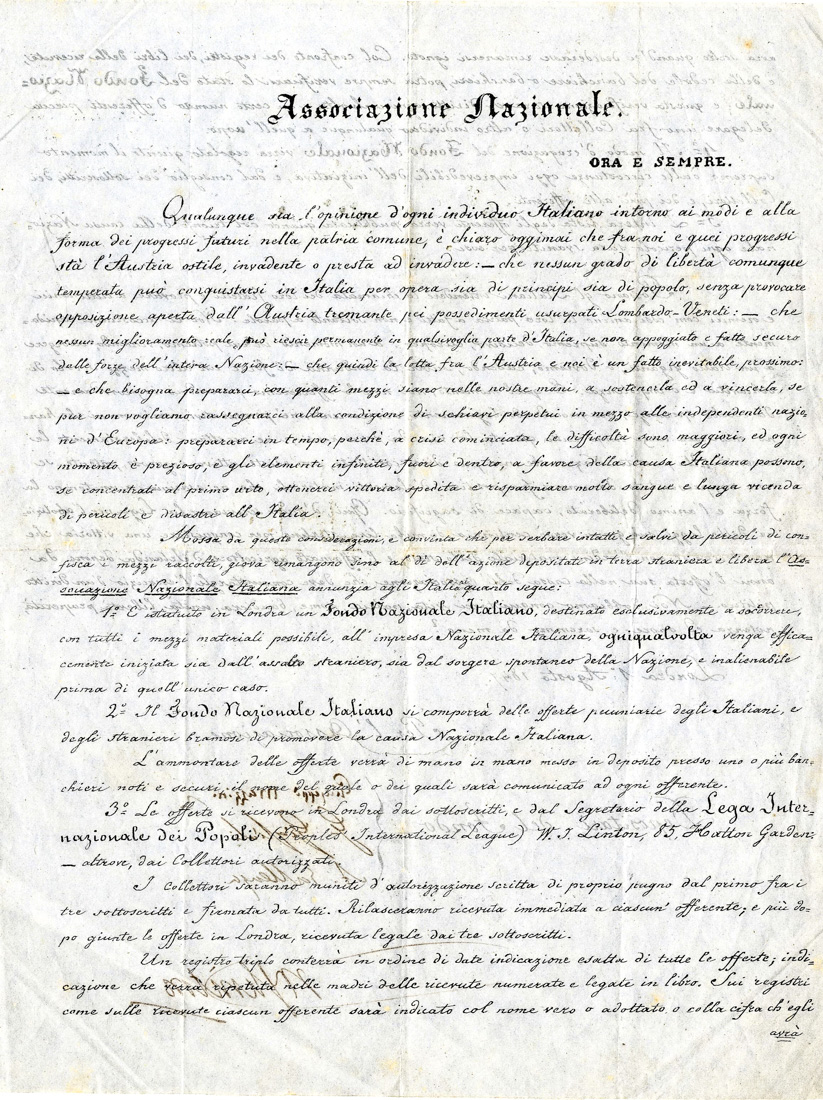 Associazione Nazionale.
ORA E SEMPRE.
Qualunque sia l'opinione d'ogni individuo Italiano intorno ai modi e alla
forma dei progressi futuri nella patria comune, è chiaro oggimai che fra noi e quei progressi
stà l'Austria ostile, invadente o presta ad invadere: — che nessun grado di libertà comunque
temperata può conquistarsi in Italia per opera sia di principi sia di popolo, senza provocare
opposizione aperta dall'Austria tremante pei possedimenti usurpati Lombardo-Veneti: — che
nessun miglioramento reale, può riescir permanente in qualsivoglia parte d'Italia, se non appoggiato e fatto securo
dalle forze dell'intera Nazione: — che quindi la lotta fra l'Austria e noi è un fatto inevitabile, prossimo:
— e che bisogna prepararci, con quanti mezzi siano nelle nostre mani, a sostenerla ed a vincerla, se
pur non vogliamo rassegnarci alla condizione di schiavi perpetui in mezzo alle independenti nazio,
ni d'Europa: prepararci in tempo, perchè, a crisi cominciata, le difficoltà sono maggiori, ed ogni
momento è prezioso, e gli elementi infiniti, fuori e dentro, a favore della causa Italiana possono,
se concentrati al primo urto, ottenerci vittoria spedita e risparmiare molto sangue e lunga vicenda
di pericoli e disastri all'Italia.
Mossa da queste considerazioni, e convinta che per serbare intatti e salvi da pericoli di con-
fisca i mezzi raccolti, giova rimangono sino al dì dell'azione depositati in terra straniera e libera l'As-
sociazione Nazionale Italiana annunzia agli Italiani quanto segue:
1º È istituito in Londra un Fondo Nazionale Italiano, destinato esclusivamente a soccorrere,
con tutti i mezzi materiali possibili, all'impresa Nazionale Italiana, ogniqualvolta venga effica-
cemente iniziata sia dall'assalto straniero, sia dal sorgere spontaneo della Nazione, e inalienabile
prima di quell'unico caso.
2º Il Fondo Nazionale Italiano si comporrà delle offerte pecuniarie degli Italiani, e
degli stranieri bramosi di promovere la causa Nazionale Italiana.
L'ammontare delle offerte verrà di mano in mano messo in deposito presso uno o più ban-
chieri noti e securi, il nome del quale o dei quali sarà comunicato ad ogni offerente.
3º Le offerte si ricevono in Londra dai sottoscritti, e dal Segretario della Lega Inter-
nazionale dei Popoli (Peoples' International League) W. J. Linton, 85, Hatton Garden:
— altrove, dai Collettori autorizzati.
I Collettori saranno muniti d'autorizzazione scritta di proprio pugno dal primo fra i
tre sottoscritti e firmata da tutti. Rilasceranno ricevuta immediata a ciascun' offerente, e più do-
po giunte le offerte in Londra, ricevuta legale dai tre sottoscritti.
Un registro triplo conterrà in ordine di date indicazione esatta di tutte le offerte; indi-
cazione che verrà ripetuta nelle madri delle ricevute numerate e legate in libro. Sui registri
come sulle ricevute ciascun offerente sarà indicato col nome vero o adottato, o colla cifra ch'egli
avrà